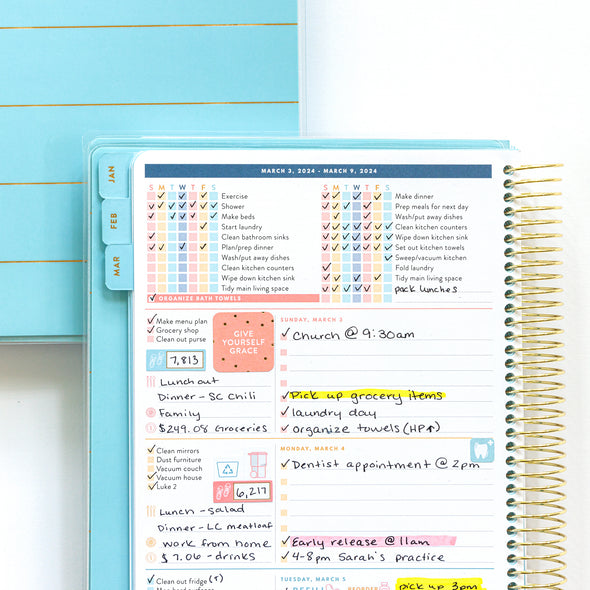 MARCH 3, 2024 - MARCH 9, 2024
JAN
FEB
MAR
S M T W T F S
Exercise
Shower
Make beds
Start laundry
Clean bathroom sinks
Plan/prep dinner
Wash/put away dishes
Clean kitchen counters
Wipe down kitchen sink
Tidy main living space
ORGANIZE BATH TOWELS
S M T W T F S
Make dinner
Prep meals for next day
Wash/put away dishes
Clean kitchen counters
Wipe down kitchen sink
Set out kitchen towels
Sweep/vacuum kitchen
Fold laundry
Tidy main living space
pack lunches
Make menu plan
Grocery shop
Clean out purse
GIVE
YOURSELF
GRACE
7,813
Lunch out
Dinner - SC Chili
Family
$249.08 Groceries
SUNDAY, MARCH 3
Church @ 9:30am
Pick up grocery items
laundry day
organize towels (HP↑)
Clean mirrors
Dust furniture
Vacuum couch
Vacuum house
Luke 2
6,217
Lunch - salad
Dinner - LC meatloaf
work from home
$7.06 - drinks
MONDAY, MARCH 4
Dentist appointment @ 2pm
Early release @ 11am
4-8pm Sarah's practice
Clean out fridge (↑)
TUESDAY, MARCH 5
REORDER
pick up 3pm